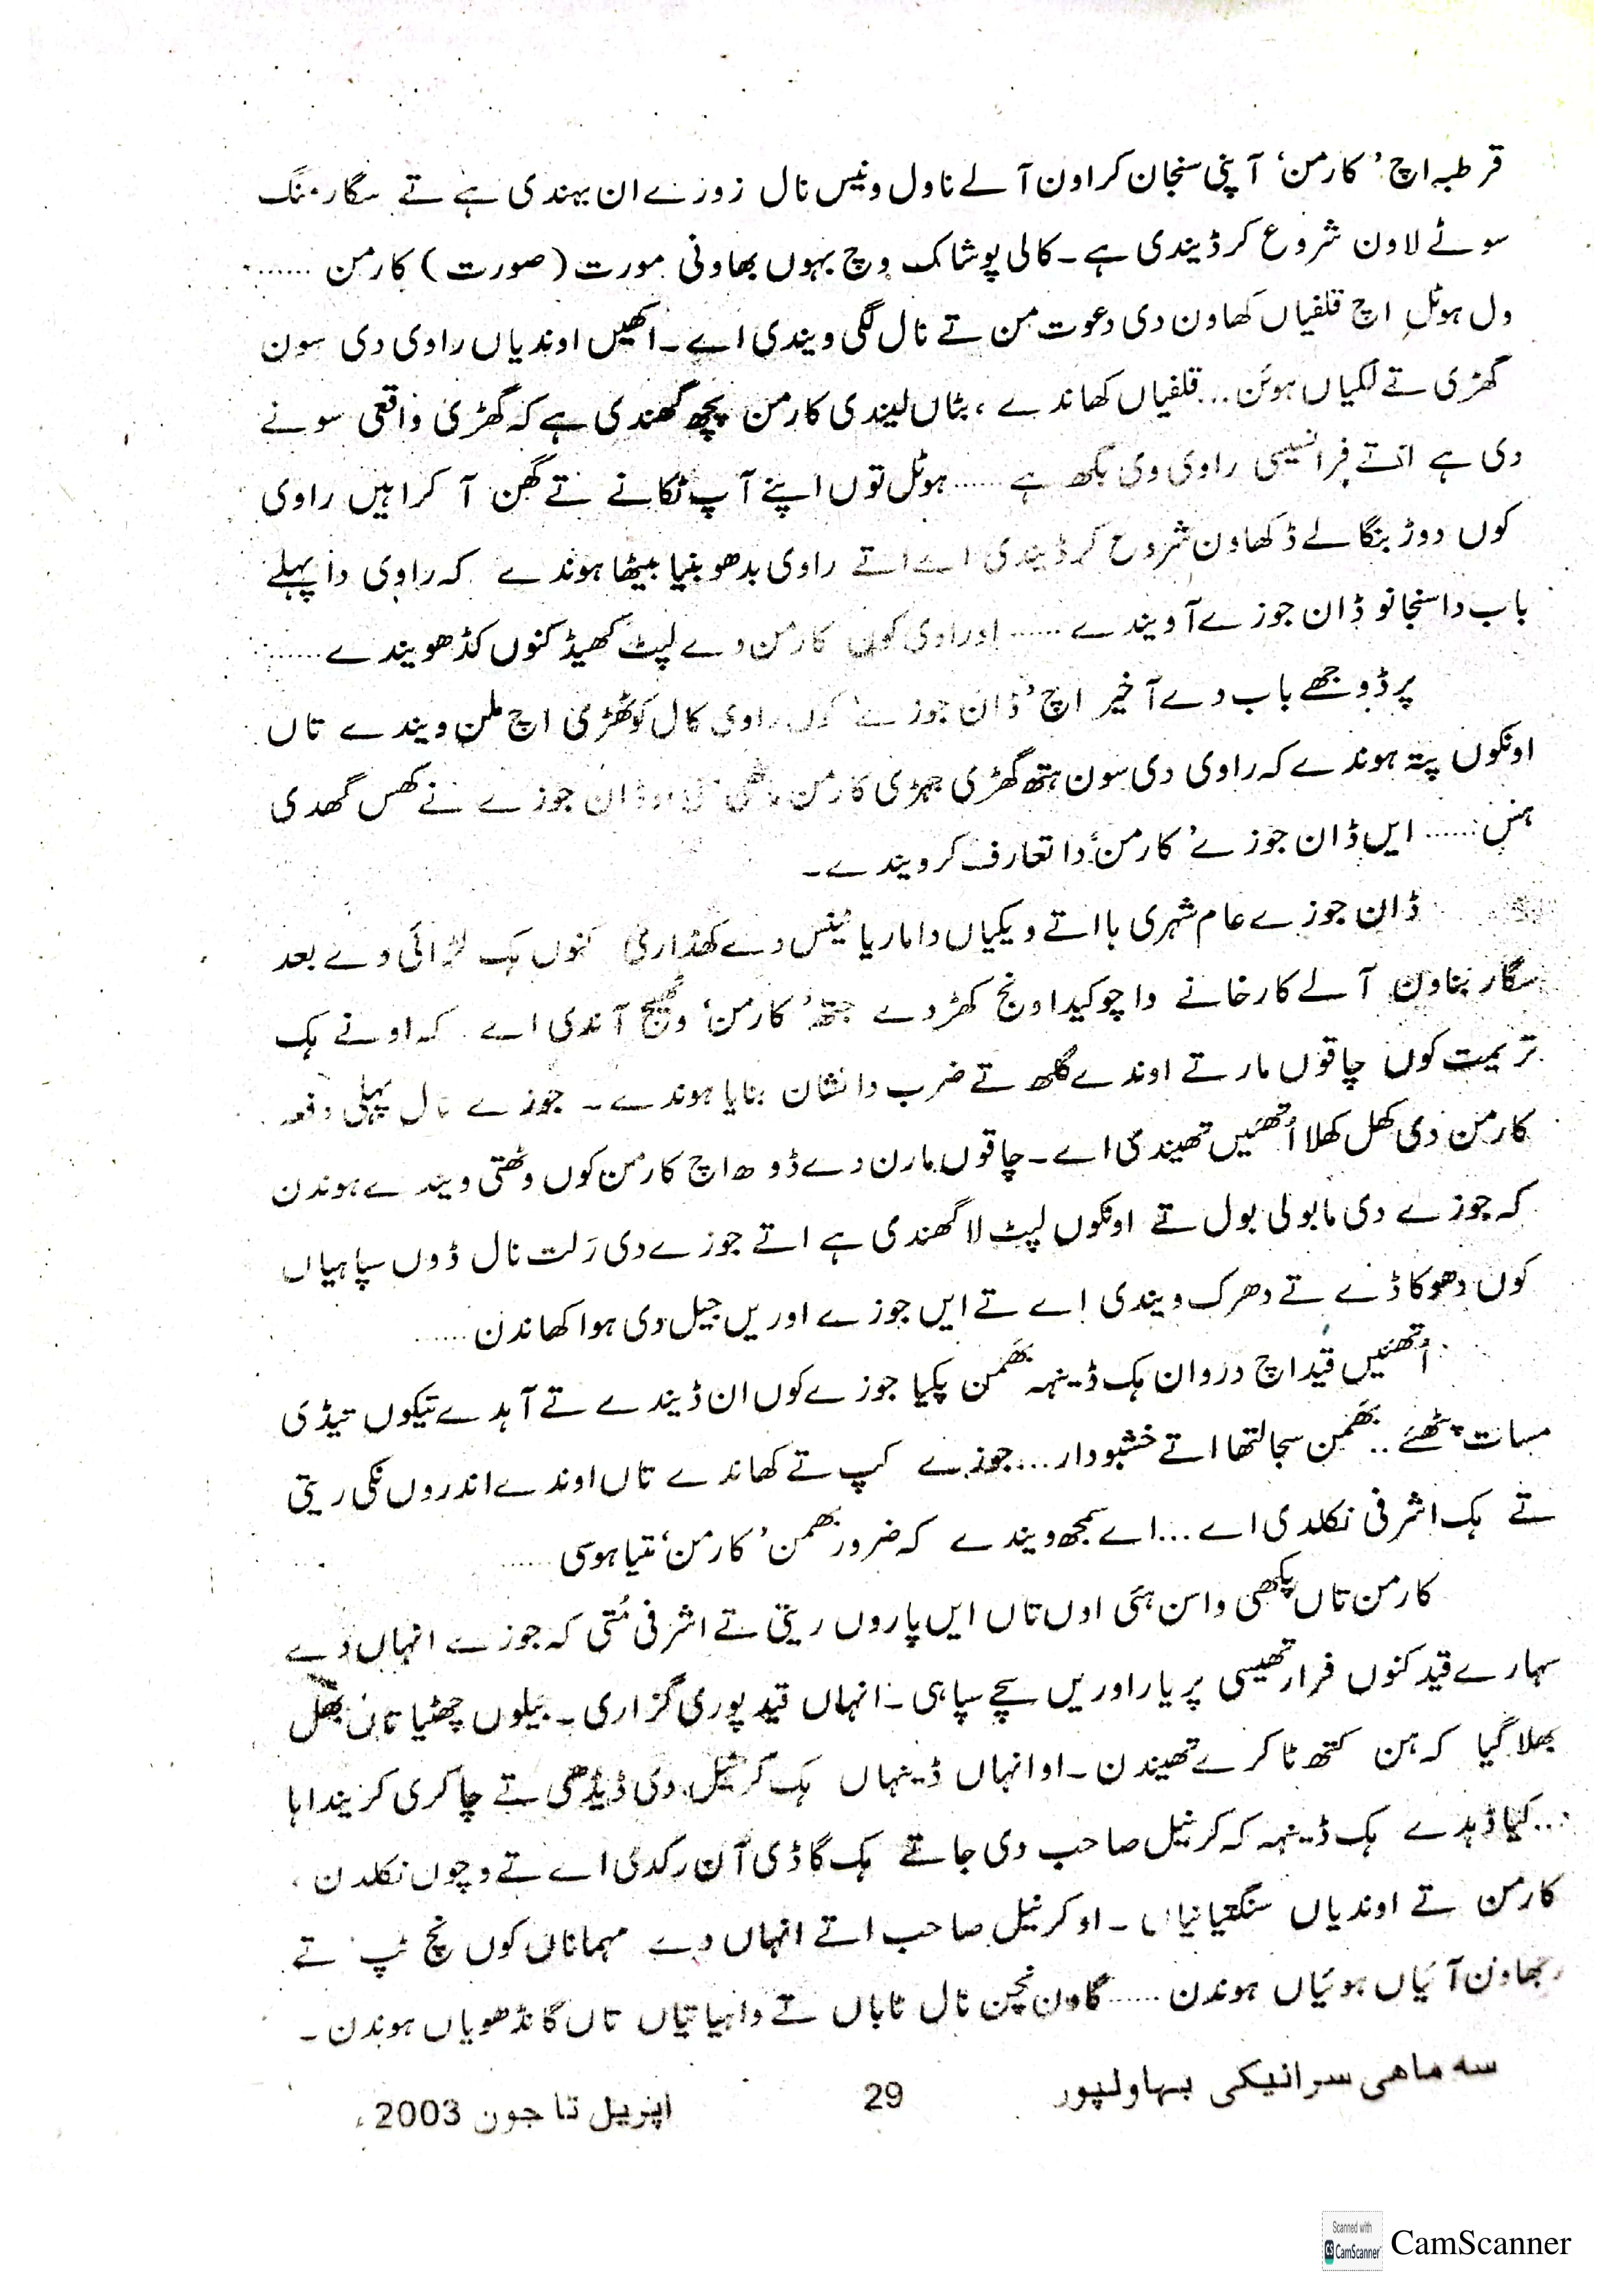 قرطبہ اچ ’کارمن‘ آپنی سنجان کراون آلے ناول ونیس نال زوزے ان بہندی ہے تے سگار منگ
سوٹے لاون شروع کر ڈیندی ہے۔ کالی پوشاک وچ بہوں بھاونی مورت (صورت) کارمن ......
ول ہوٹل اچ قلفیاں کھاون دی دعوت من تے نال لگی ویندی اے۔ اکھیں اوندیاں راوی دی سون
گھڑی تے لگیاں ہوئن... قلفیاں کھاندے، بٹاں لیندی کارمن پچھ گھندی ہے کہ گھڑی واقعی سونے
دی ہے اتے فرانسیسی راوی وی بکھ ہے ...... ہوٹل توں اپنے آپ ٹکانے تے گھن آ کراہیں راوی
کوں دوڑ بنگالے ڈکھاون شروع کر ڈیندی اے اتے راوی بدھو بنیا بیٹھا ہوندے کہ راوی دا پہلے
باب دا سنجانو ڈان جوزے آویندے ...... اور راوی کوں کارمن دے لپٹ کھیڈ کنوں کڈھ ویندے ......
پر ڈوجھے باب دے آخیر اچ ’ڈان جوزے‘ کوں راوی کال کوٹھڑی اچ ملن ویندے تاں
اونکوں پتہ ہوندے کہ راوی دی سون ہتھ گھڑی جہڑی کارمن ڈان جوزے نے کھس گھدی
ہئس ...... ایں ڈان جوزے ’کارمن‘ دا تعارف کرویندے۔
ڈان جوزے عام شہری ہا اتے ویکیاں دا ماریا ٹینس دے کھڈاری کنوں ہک لڑائی دے بعد
سگار بناون آلے کارخانے دا چوکیدار ونج کھڑدے جتھ ’کارمن‘ وٹیج آندی اے کہ اونے ہک
تریمت کوں چاقوں مار تے اوندے گلھ تے ضرب دا نشان بنایا ہوندے۔ جوزے نال پہلی دفعہ
کارمن دی کھل کھلا اُتھئیں تھیندی اے۔ چاقوں مارن دے ڈوھ اچ کارمن کوں وٹھتی ویندے ہوندن
کہ جوزے دی ما بولی بول تے اونکوں لپٹ لا گھندی ہے اتے جوزے دی رَلت نال ڈوں سپاہیاں
کوں دھوکا ڈے تے دھرک ویندی اے تے ایں جوزے اوریں جیل دی ہوا کھاندن ......
اُتھئیں قید اچ دروان ہک ڈینہہ بھَمن پکیا جوزے کوں ان ڈیندے تے آہدے تیکوں تیڈی
مسات پٹھئے .. بھَمن سجا لتھا اتے خشبودار ... جوزے کپ تے کھاندے تاں اوندے اندروں نکی ریتی
تے ہک اشرفی نکلدی اے ... اے سمجھ ویندے کہ ضرور بھمن ’کارمن‘ نیا ہوسی ......
کارمن تاں پکھی واسن ہئی اوں تاں ایں پاروں ریتی تے اشرفی مُتی کہ جوزے انہاں دے
سہارے قید کنوں فرار تھیسی پر یار اوریں سچے سپاہی۔ انہاں قید پوری گزاری۔ بیلوں چھٹیا تاں بھل
بھلا گیا کہ ہن کتھ ٹاکرے تھیندن۔ او انہاں ڈینہاں ہک کرنیل دی ڈیڈھی تے چاکری کریندا ہا
... کیا ڈہدے ہک ڈینہہ کہ کرنیل صاحب دی جا تے ہک گاڈی آن رکدی اے تے وچوں نکلدن،
کارمن تے اوندیاں سنگتیانیاں۔ او کرنیل صاحب اتے انہاں دے مہماناں کوں نچ ٹپ تے
رجھاون آئیاں ہوئیاں ہوندن ...... گاون نچن نال ٹاباں تے واہیاتیاں تاں گانڈھویاں ہوندن۔
سہ ماھی سرائیکی بہاولپور 29 اپریل تا جون 2003ء
Scanned with
CS CamScanner
CamScanner